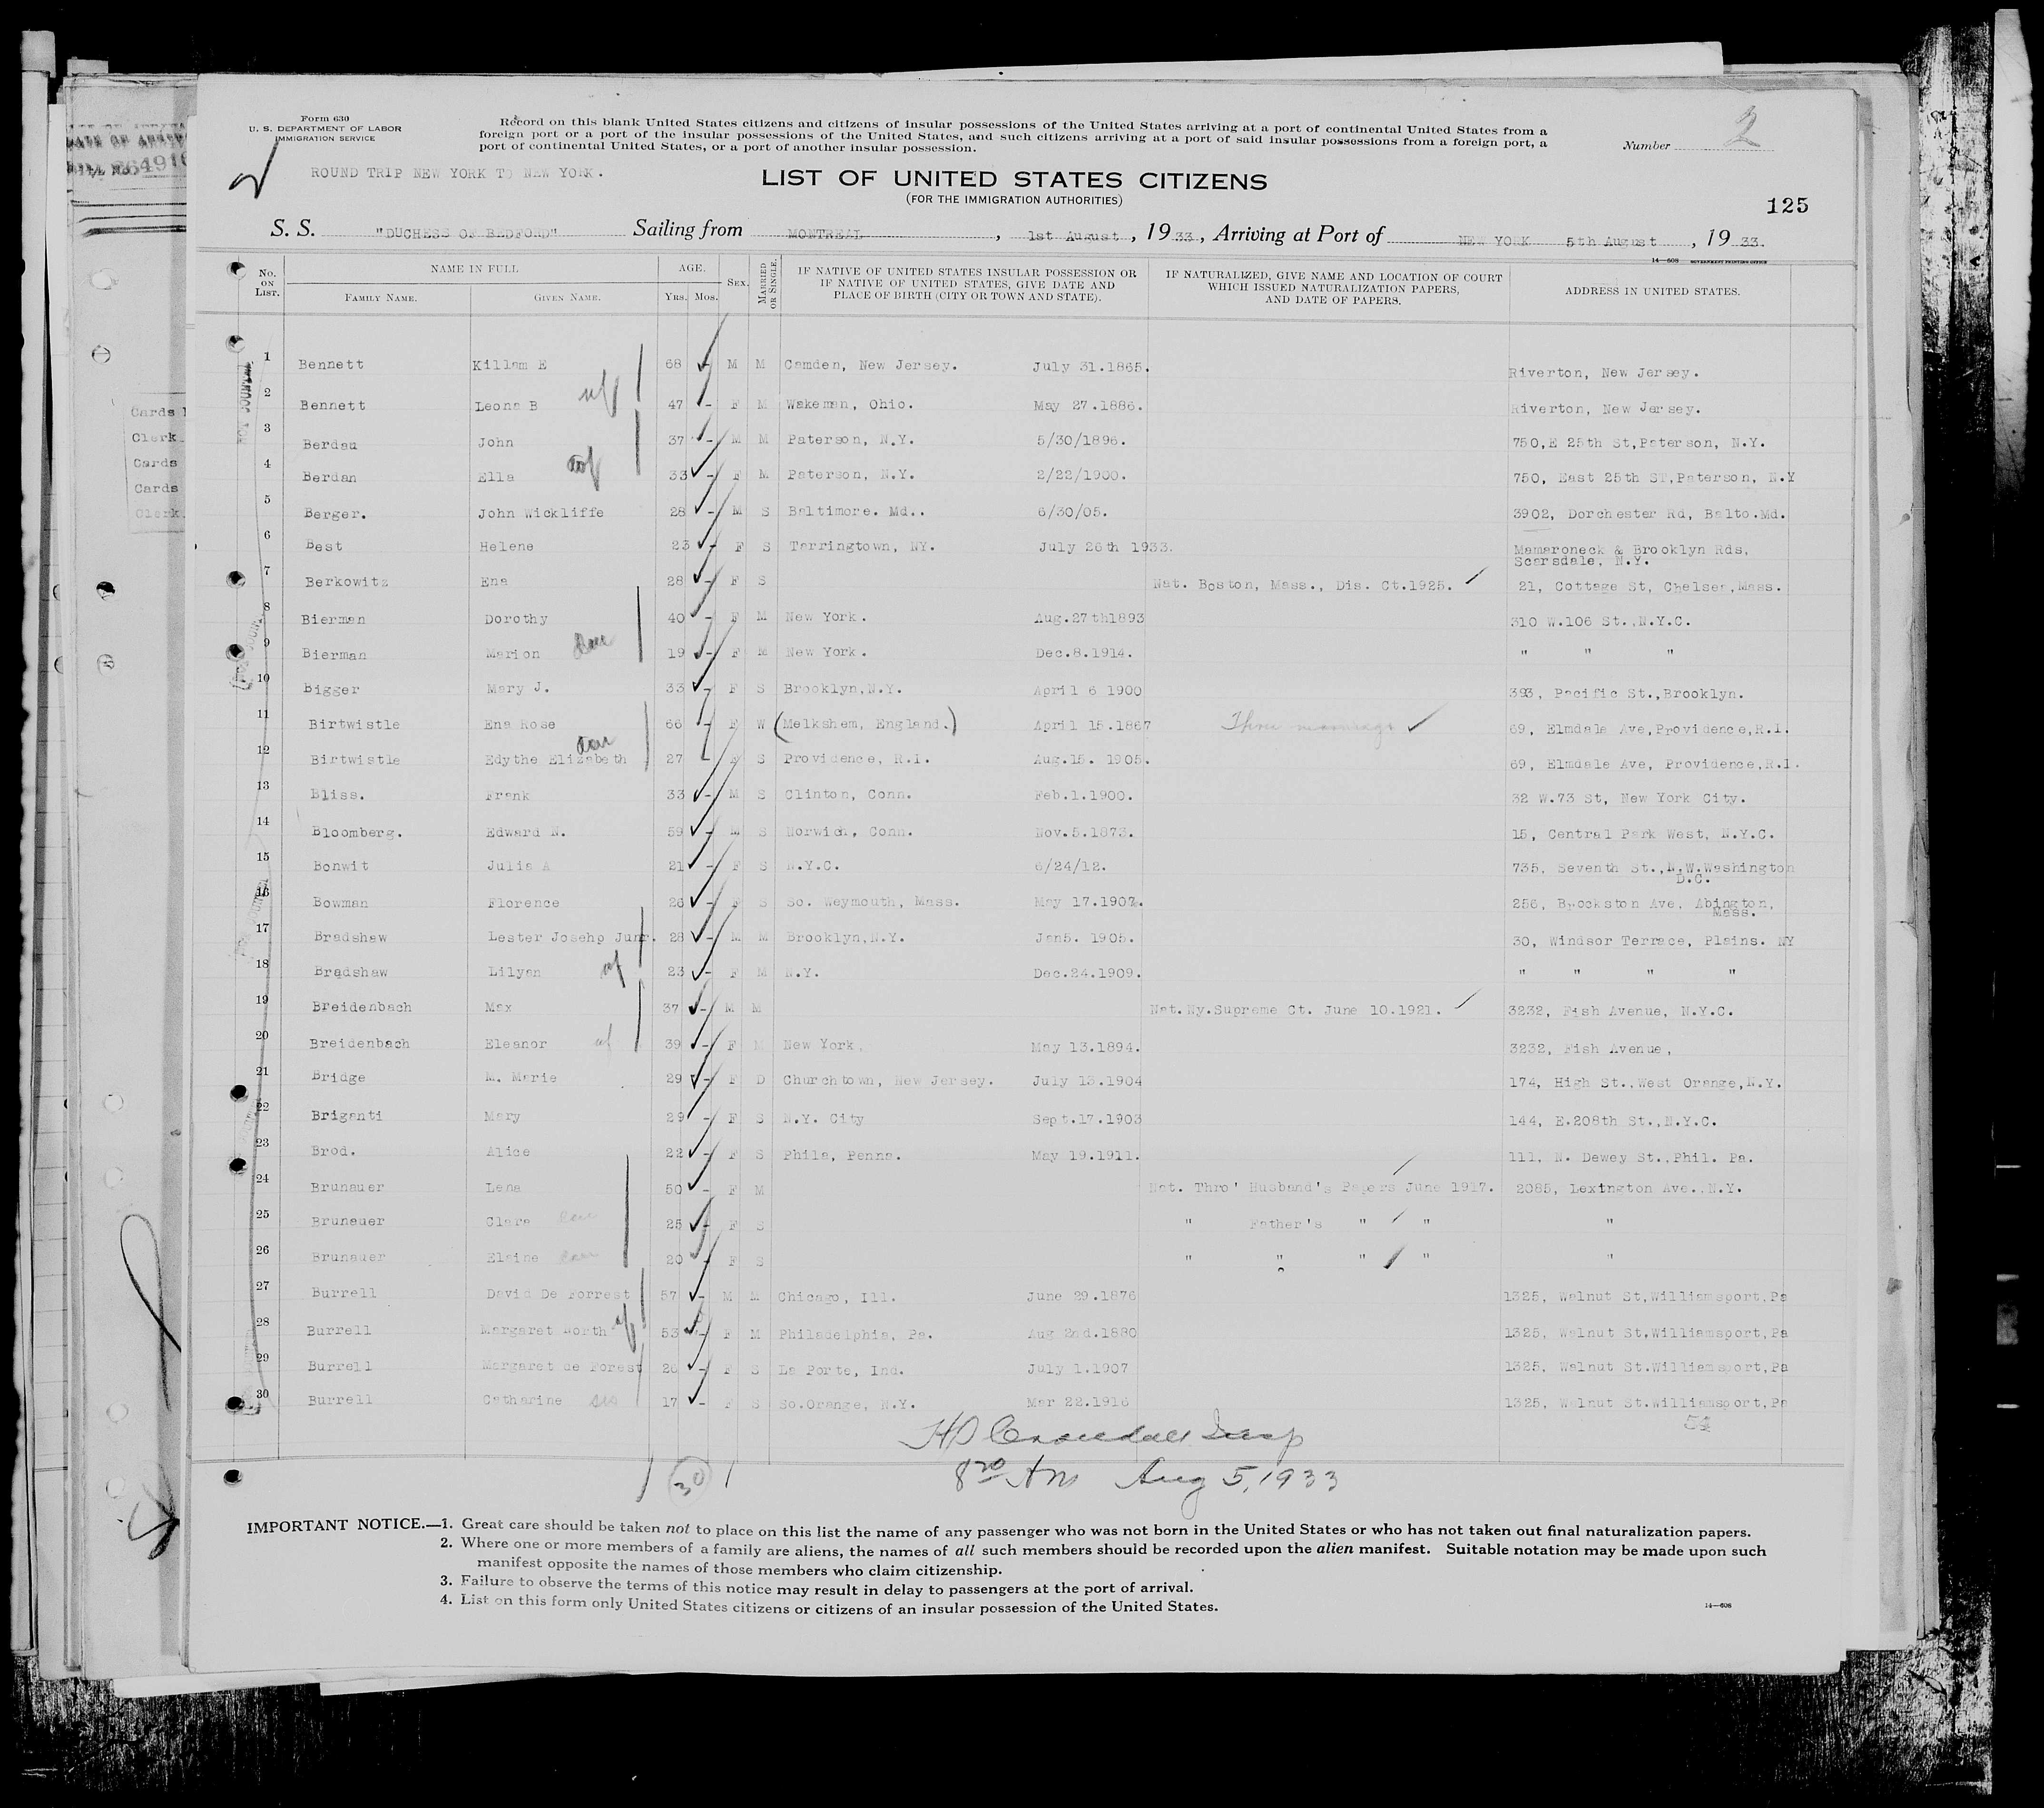 Form 630
U. S. DEPARTMENT OF LABOR
IMMIGRATION SERVICE
Record on this blank United States citizens and citizens of insular possessions of the United States arriving at a port of continental United States from a
foreign port or a port of the insular possessions of the United States, and such citizens arriving at a port of said insular possessions from a foreign port, a
port of continental United States, or a port of another insular possession.
Number 2
ROUND TRIP NEW YORK TO NEW YORK.
LIST OF UNITED STATES CITIZENS
(FOR THE IMMIGRATION AUTHORITIES)
125
S. S. "DUCHESS OF BEDFORD" Sailing from MONTREAL, 1st August, 1933, Arriving at Port of NEW YORK 5th August, 1933.
14—608 GOVERNMENT PRINTING OFFICE
No. ON LIST. NAME IN FULL FAMILY NAME. GIVEN NAME. AGE. Yrs. Mos. SEX. MARRIED OR SINGLE. IF NATIVE OF UNITED STATES INSULAR POSSESSION OR IF NATIVE OF UNITED STATES, GIVE DATE AND PLACE OF BIRTH (CITY OR TOWN AND STATE). IF NATURALIZED, GIVE NAME AND LOCATION OF COURT WHICH ISSUED NATURALIZATION PAPERS, AND DATE OF PAPERS. ADDRESS IN UNITED STATES.
1 Bennett Killam E 68 - M M Camden, New Jersey. July 31.1865. Riverton, New Jersey.
2 Bennett Leona B wf 47 - F M Wakeman, Ohio. May 27.1886. Riverton, New Jersey.
3 Berdau John 37 - M M Paterson, N.Y. 5/30/1896. 750,E 25th St,Paterson, N.Y.
4 Berdan Ella wf 33 - F M Paterson, N.Y. 2/22/1900. 750, East 25th ST,Paterson, N.Y
5 Berger. John Wickliffe 28 - M S Baltimore. Md.. 6/30/05. 3902, Dorchester Rd, Balto.Md.
6 Best Helene 23 - F S Tarringtown, NY. July 26th 1933. Mamaroneck & Brooklyn Rds, Scarsdale, N.Y.
7 Berkowitz Ena 28 - F S Nat. Boston, Mass., Dis. Ct.1925. 21, Cottage St, Chelsea,Mass.
8 Bierman Dorothy 40 - F M New York. Aug.27th1893 310 W.106 St.,N.Y.C.
9 Bierman Marion dau 19 - F M New York. Dec.8.1914. " " "
10 Bigger Mary J. 33 - F S Brooklyn,N.Y. April 6 1900 393, Pacific St.,Brooklyn.
11 Birtwistle Ena Rose 66 - F W (Melksham, England.) April 15.1867 Thru marriage 69, Elmdale Ave,Providence,R.I.
12 Birtwistle Edythe Elizabeth dau 27 - F S Providence, R.I. Aug.15. 1905. 69, Elmdale Ave, Providence,R.I.
13 Bliss. Frank 33 - M S Clinton, Conn. Feb.1.1900. 32 W.73 St, New York City.
14 Bloomberg. Edward N. 59 - M S Norwich, Conn. Nov.5.1873. 15, Central Park West, N.Y.C.
15 Bonwit Julia A 21 - F S N.Y.C. 6/24/12. 735, Seventh St.,N.W.Washington D.C.
16 Bowman Florence 26 - F S So. Weymouth, Mass. May 17.1907. 256, Brockston Ave, Abington, Mass.
17 Bradshaw Lester Josehp Junr. 28 - M M Brooklyn,N.Y. Jan5. 1905. 30, Windsor Terrace, Plains. NY
18 Bradshaw Lilyan wf 23 - F M N.Y. Dec.24.1909. " " " "
19 Breidenbach Max 37 - M M Nat.Ny.Supreme Ct. June 10.1921. 3232, Fish Avenue, N.Y.C.
20 Breidenbach Eleanor wf 39 - F M New York. May 13.1894. 3232, Fish Avenue,
21 Bridge M. Marie 29 - F D Churchtown, New Jersey. July 13.1904 174, High St.,West Orange,N.Y.
22 Briganti Mary 29 - F S N.Y. City Sept.17.1903 144, E.208th St.,N.Y.C.
23 Brod. Alice 22 - F S Phila, Penna. May 19.1911. 111, N. Dewey St.,Phil. Pa.
24 Brunauer Lena 50 - F M Nat. Thro' Husband's Papers June 1917. 2085, Lexington Ave.,N.Y.
25 Brunauer Clara dau 25 - F S " Father's " " "
26 Brunauer Elaine dau 20 - F S " " " " "
27 Burrell David De Forrest 57 - M M Chicago, Ill. June 29.1876 1325, Walnut St,Williamsport,Pa
28 Burrell Margaret North wf 53 - F M Philadelphia, Pa. Aug 2nd.1880 1325, Walnut St.Williamsport,Pa
29 Burrell Margaret de Forest 26 - F S La Porte, Ind. July 1.1907 1325, Walnut St.Williamsport,Pa
30 Burrell Catharine sis 17 - F S So.Orange, N.Y. Mar 22.1916 1325, Walnut St.Williamsport,Pa
30
8 30 AM Aug 5, 1933
IMPORTANT NOTICE.—1. Great care should be taken not to place on this list the name of any passenger who was not born in the United States or who has not taken out final naturalization papers.
2. Where one or more members of a family are aliens, the names of all such members should be recorded upon the alien manifest. Suitable notation may be made upon such
manifest opposite the names of those members who claim citizenship.
3. Failure to observe the terms of this notice may result in delay to passengers at the port of arrival.
4. List on this form only United States citizens or citizens of an insular possession of the United States.
14—608
Cards
Clerk
Cards
Cards
Clerk